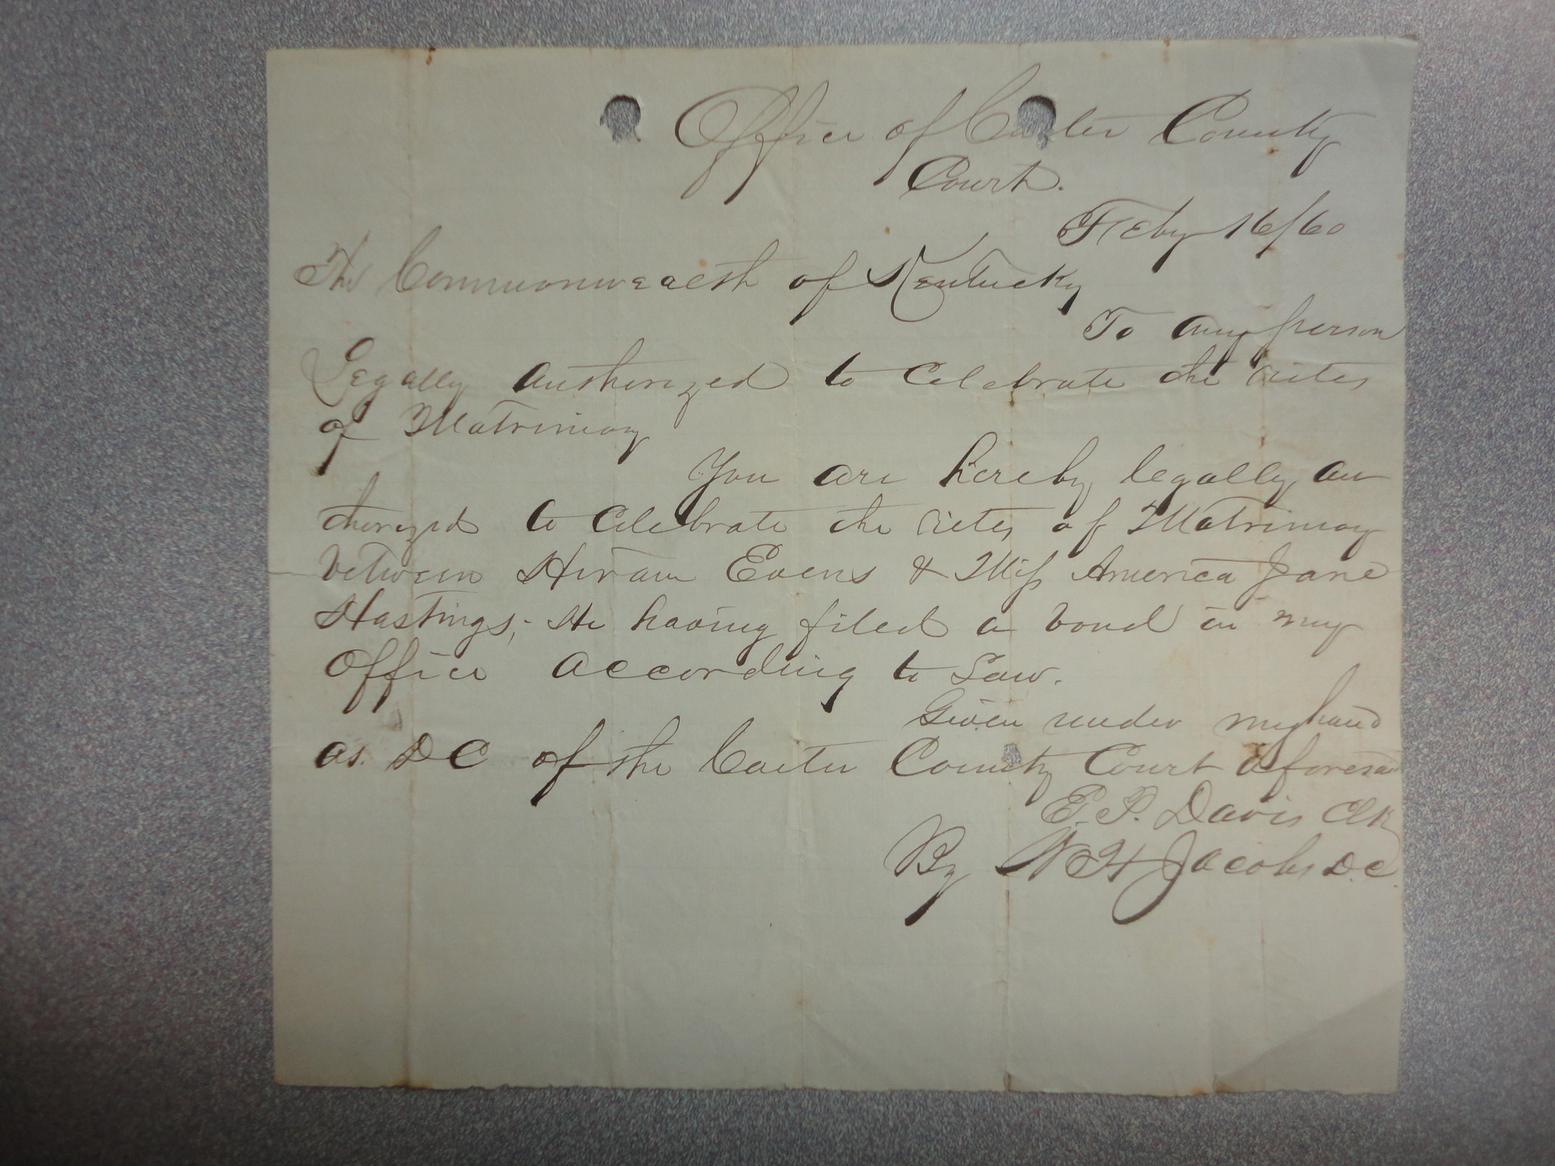 Office of Carter County
Court.
Feby 16/60
The Commonwealth of Kentucky
To any person
Legally authorized to Celebrate the rites
of Matrimoy
You are hereby legally au
thorized to Celebrate the rites of Matrimoy
between Hiram Evens & Miss America Jane
Hastings; He having filed a bond in my
Office according to Law.
Given under my hand
as. DC of the Carter County Court aforesai
E. P. Davis Clk
By W H Jacobs D.C.